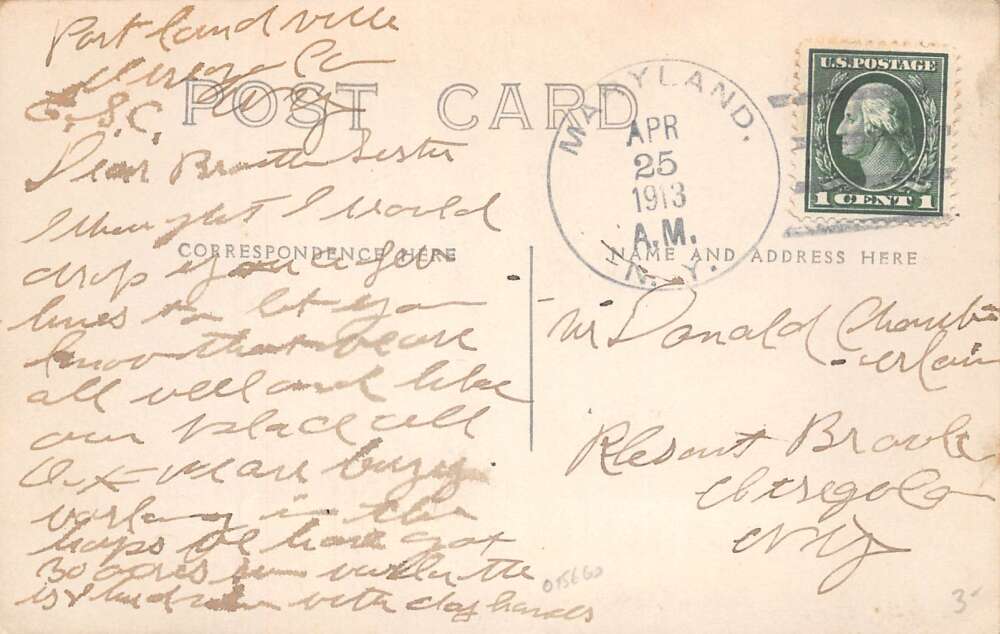 Portlandville
Otsego Co
N.Y.
POST CARD
Dear Brother Sister
I thought I would
CORRESPONDENCE HERE
drop you a few
lines to let you
know that we are
all well and like
our place all
O.K we are busy
working in the
hops We have got
30 acres
with day hands
MARYLAND.
APR
25
1913
A.M.
N.Y.
U.S. POSTAGE
1 CENT 1
NAME AND ADDRESS HERE
Mr Donald Chamb
-erlain
Plesant Brook
Otsego Co
N.Y
OTSEGO
3-